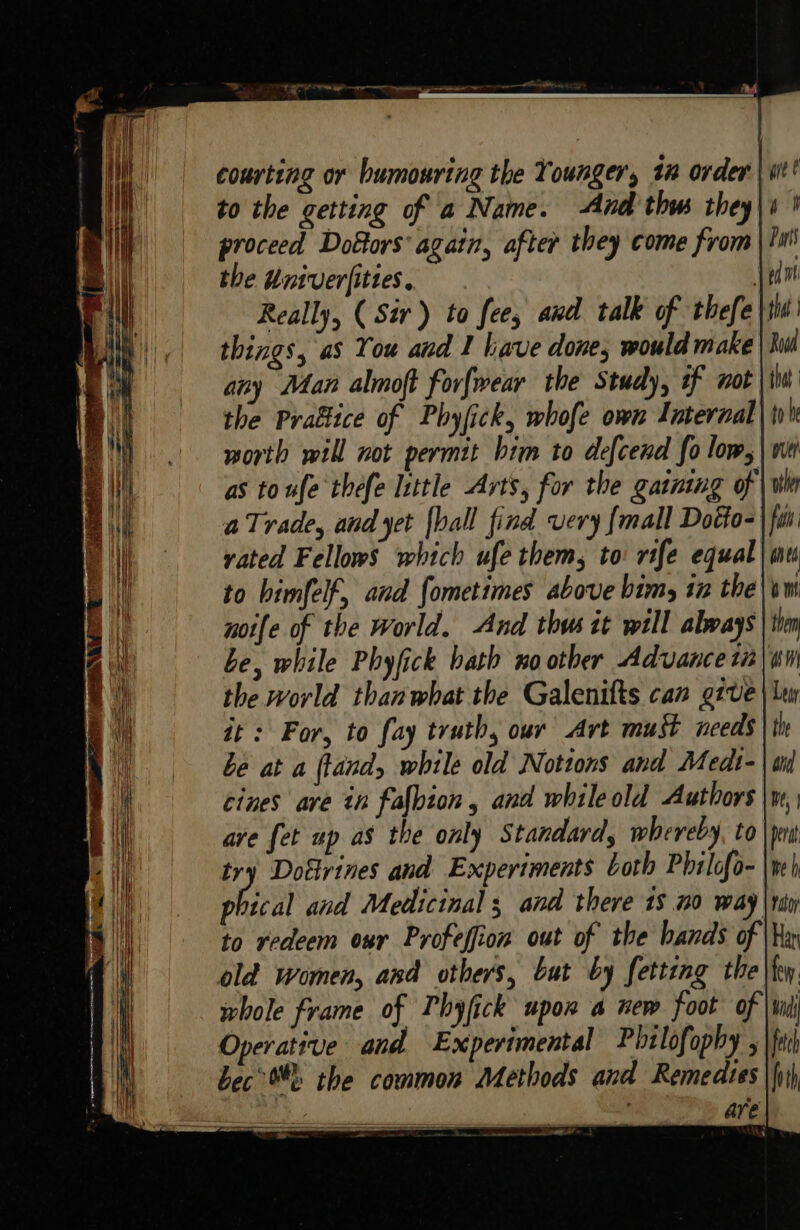 courting or humouring the Younger, in order
to the getting of a Name. And thus they
proceed Doctors again, after they come from
the Univerſities.
Really, (Sir) to ſee, and talk of theſe
things, as You and I have done, would make
any Man almoſt forſwear the Study, if not
the Practice of Phyſick, whoſe own Internal
worth will not permit him to deſcend ſo low,
as to uſe theſe little Arts, for the gaining of
a Trade, and yet ſhall find very ſmall Docto-
rated Fellows which uſe them, to riſe equal
to himſelf, and ſometimes above him, in the
noiſe of the World. And thus it will always
be, while Phyſick hath no other Advance in
the World than what the Galeniſts can give
it: For, to ſay truth, our Art muſt needs
be at a ſtand, while old Notions and Medi-
cines are in faſhion, and while old Authors
are ſet up as the only Standard, whereby to
try Doctrines and Experiments both Philoſo-
phical and Medicinal; and there is no way
to redeem our Profeſſion out of the hands of
old Women, and others, but by ſetting the
whole frame of Phyſick upon a new foot of
Operative and Experimental Philoſophy,
the common Methods and Remedies
are